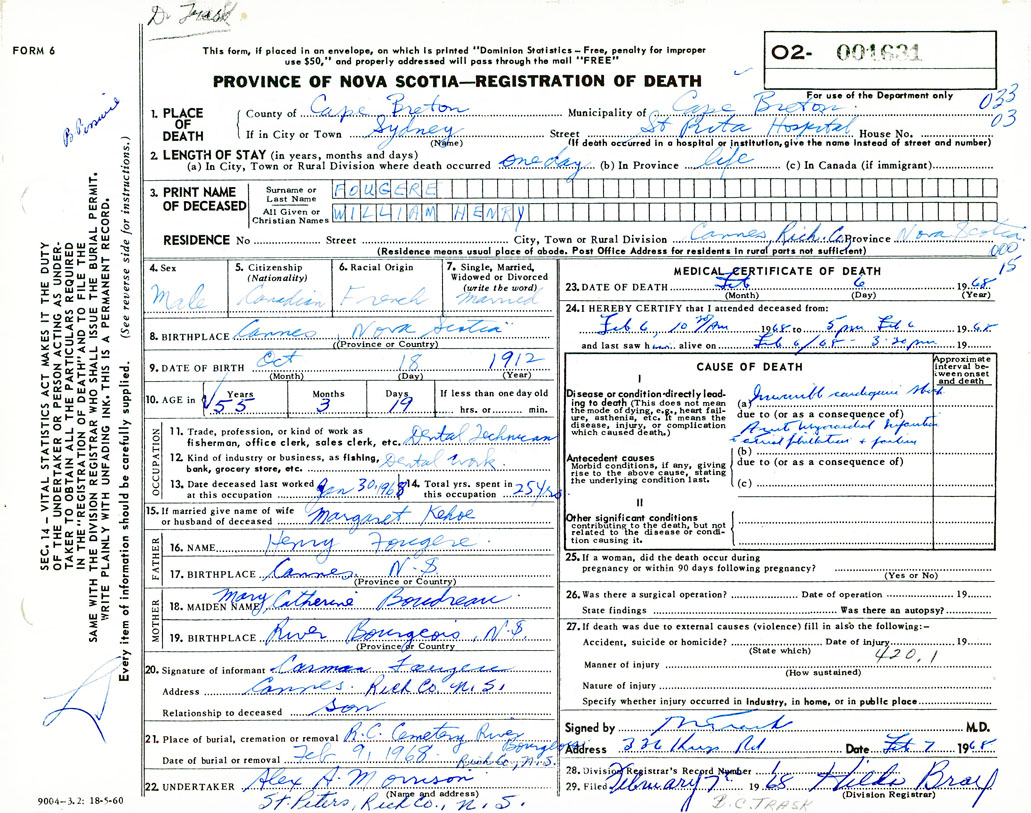 Dr Trask
FORM 6
This form, if placed in an envelope, on which is printed "Dominion Statistics – Free, penalty for improper
use $50," and properly addressed will pass through the mail "FREE"
PROVINCE OF NOVA SCOTIA—REGISTRATION OF DEATH
02- 001631
For use of the Department only
033
03
1. PLACE OF DEATH
County of Cape Breton Municipality of Cape Breton
If in City or Town Sydney Street St Rita Hospital House No.
(Name) (If death occurred in a hospital or institution, give the name instead of street and number)
2. LENGTH OF STAY (in years, months and days)
(a) In City, Town or Rural Division where death occurred one day (b) In Province life (c) In Canada (if immigrant)
3. PRINT NAME OF DECEASED
Surname or Last Name FOUGERE
All Given or Christian Names WILLIAM HENRY
RESIDENCE No Street City, Town or Rural Division Cannes Rich. Co Province Nova Scotia
(Residence means usual place of abode. Post Office Address for residents in rural parts not sufficient)
000
15
4. Sex Male
5. Citizenship (Nationality) Canadian
6. Racial Origin French
7. Single, Married, Widowed or Divorced (write the word) Married
8. BIRTHPLACE Cannes Nova Scotia
(Province or Country)
9. DATE OF BIRTH Oct 18 1912
(Month) (Day) (Year)
10. AGE in Years 55 Months 3 Days 19 If less than one day old
hrs. or min.
OCCUPATION
11. Trade, profession, or kind of work as
fisherman, office clerk, sales clerk, etc. Dental Technician
12. Kind of industry or business, as fishing,
bank, grocery store, etc. Dental Work
13. Date deceased last worked at this occupation Jan 30, 1968
14. Total yrs. spent in this occupation 25 yrs
15. If married give name of wife
or husband of deceased Margaret Kehoe
FATHER
16. NAME Henry Fougere
17. BIRTHPLACE Cannes N.S
(Province or Country)
MOTHER
18. MAIDEN NAME Mary Catherine Boudreau
19. BIRTHPLACE River Bourgeois, N.S
(Province or Country)
20. Signature of informant Carman Fougere
Address Cannes. Rich Co. N.S.
Relationship to deceased Son
21. Place of burial, cremation or removal R.C. Cemetery River Bourgeois
Date of burial or removal Feb 9, 1968 Rich Co., N.S.
22. UNDERTAKER Alex A. Morrison
(Name and address)
St. Peters, Rich Co., N.S.
MEDICAL CERTIFICATE OF DEATH
23. DATE OF DEATH Feb 6 1968
(Month) (Day) (Year)
24. I HEREBY CERTIFY that I attended deceased from:
Feb 6, 10 AM 1968 to 5 pm Feb 6 1968
and last saw h alive on Feb 6/68 - 3:30 pm 19
CAUSE OF DEATH
Approximate interval between onset and death
I
Disease or condition directly leading to death (This does not mean
the mode of dying, e.g., heart failure, asthenia, etc. It means the
disease, injury, or complication
which caused death.)
(a) Irreversible cardiogenic shock
due to (or as a consequence of)
Acut myocardial infarction
(b)
due to (or as a consequence of)
(c)
Antecedent causes
Morbid conditions, if any, giving
rise to the above cause, stating
the underlying condition last.
II
Other significant conditions
contributing to the death, but not
related to the disease or condition causing it.
25. If a woman, did the death occur during
pregnancy or within 90 days following pregnancy?
(Yes or No)
26. Was there a surgical operation? Date of operation 19
State findings Was there an autopsy?
27. If death was due to external causes (violence) fill in also the following:-
Accident, suicide or homicide? Date of Injury 19
(State which)
420.1
Manner of injury
(How sustained)
Nature of injury
Specify whether injury occurred in Industry, in home, or in public place
Signed by Trask M.D.
Address 336 Kings Rd Date Feb 7 1968
28. Division Registrar's Record Number
29. Filed February 7 1968 Hilda Bray
(Division Registrar)
B.C. TRASK
9004–3.2: 18-5-60
SEC. 14 – VITAL STATISTICS ACT MAKES IT THE DUTY
OF THE UNDERTAKER OR PERSON ACTING AS UNDERTAKER TO OBTAIN ALL THE PARTICULARS REQUIRED
IN THE "REGISTRATION OF DEATH" AND TO FILE THE
SAME WITH THE DIVISION REGISTRAR WHO SHALL ISSUE THE BURIAL PERMIT.
WRITE PLAINLY WITH UNFADING INK. THIS IS A PERMANENT RECORD.
Every item of information should be carefully supplied. (See reverse side for instructions.)